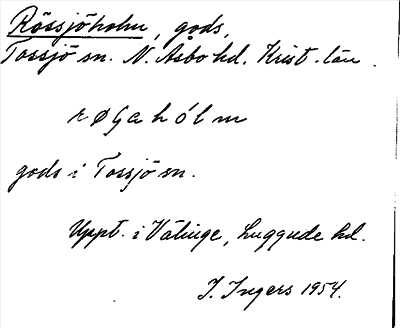 Rössjöholm, gods,
Tossjö sn. N. Asbo hd. Krist. län.
røʃahólm
gods i Tossjö sn.
Uppt. i Välinge, Luggude hd.
I. Ingers 1954.